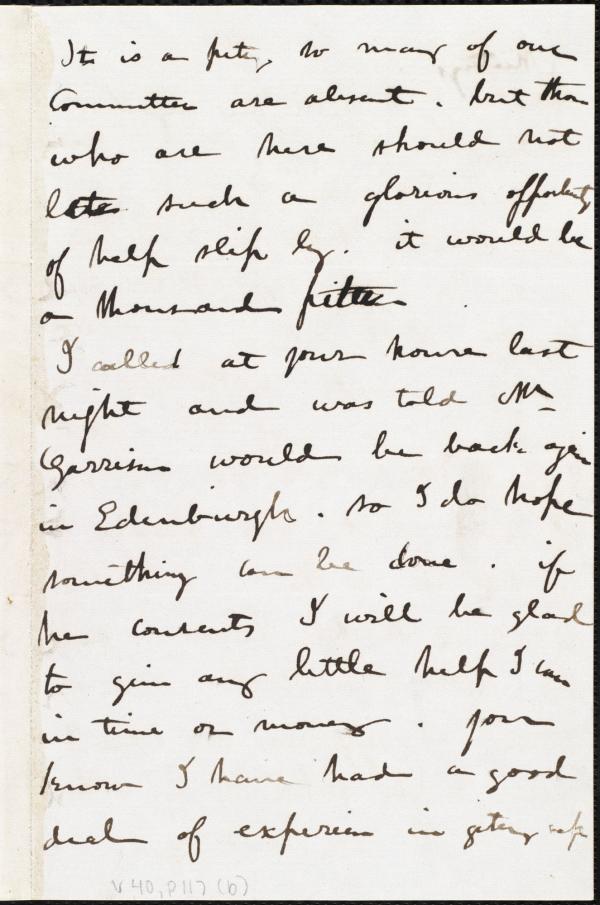 It is a pity, so many of our
Committee are absent. but those
who are here should not
let such a glorious opportunity
of help slip by. it would be
a thousand pities
I called at your house last
night and was told Mr
Garrison would be back again
in Edinburgh. so I do hope
something can be done. if
he consents I will be glad
to give any little help I can
in time or money. you
know I have had a good
deal of experien in geting up
V 40, P 117 (b)